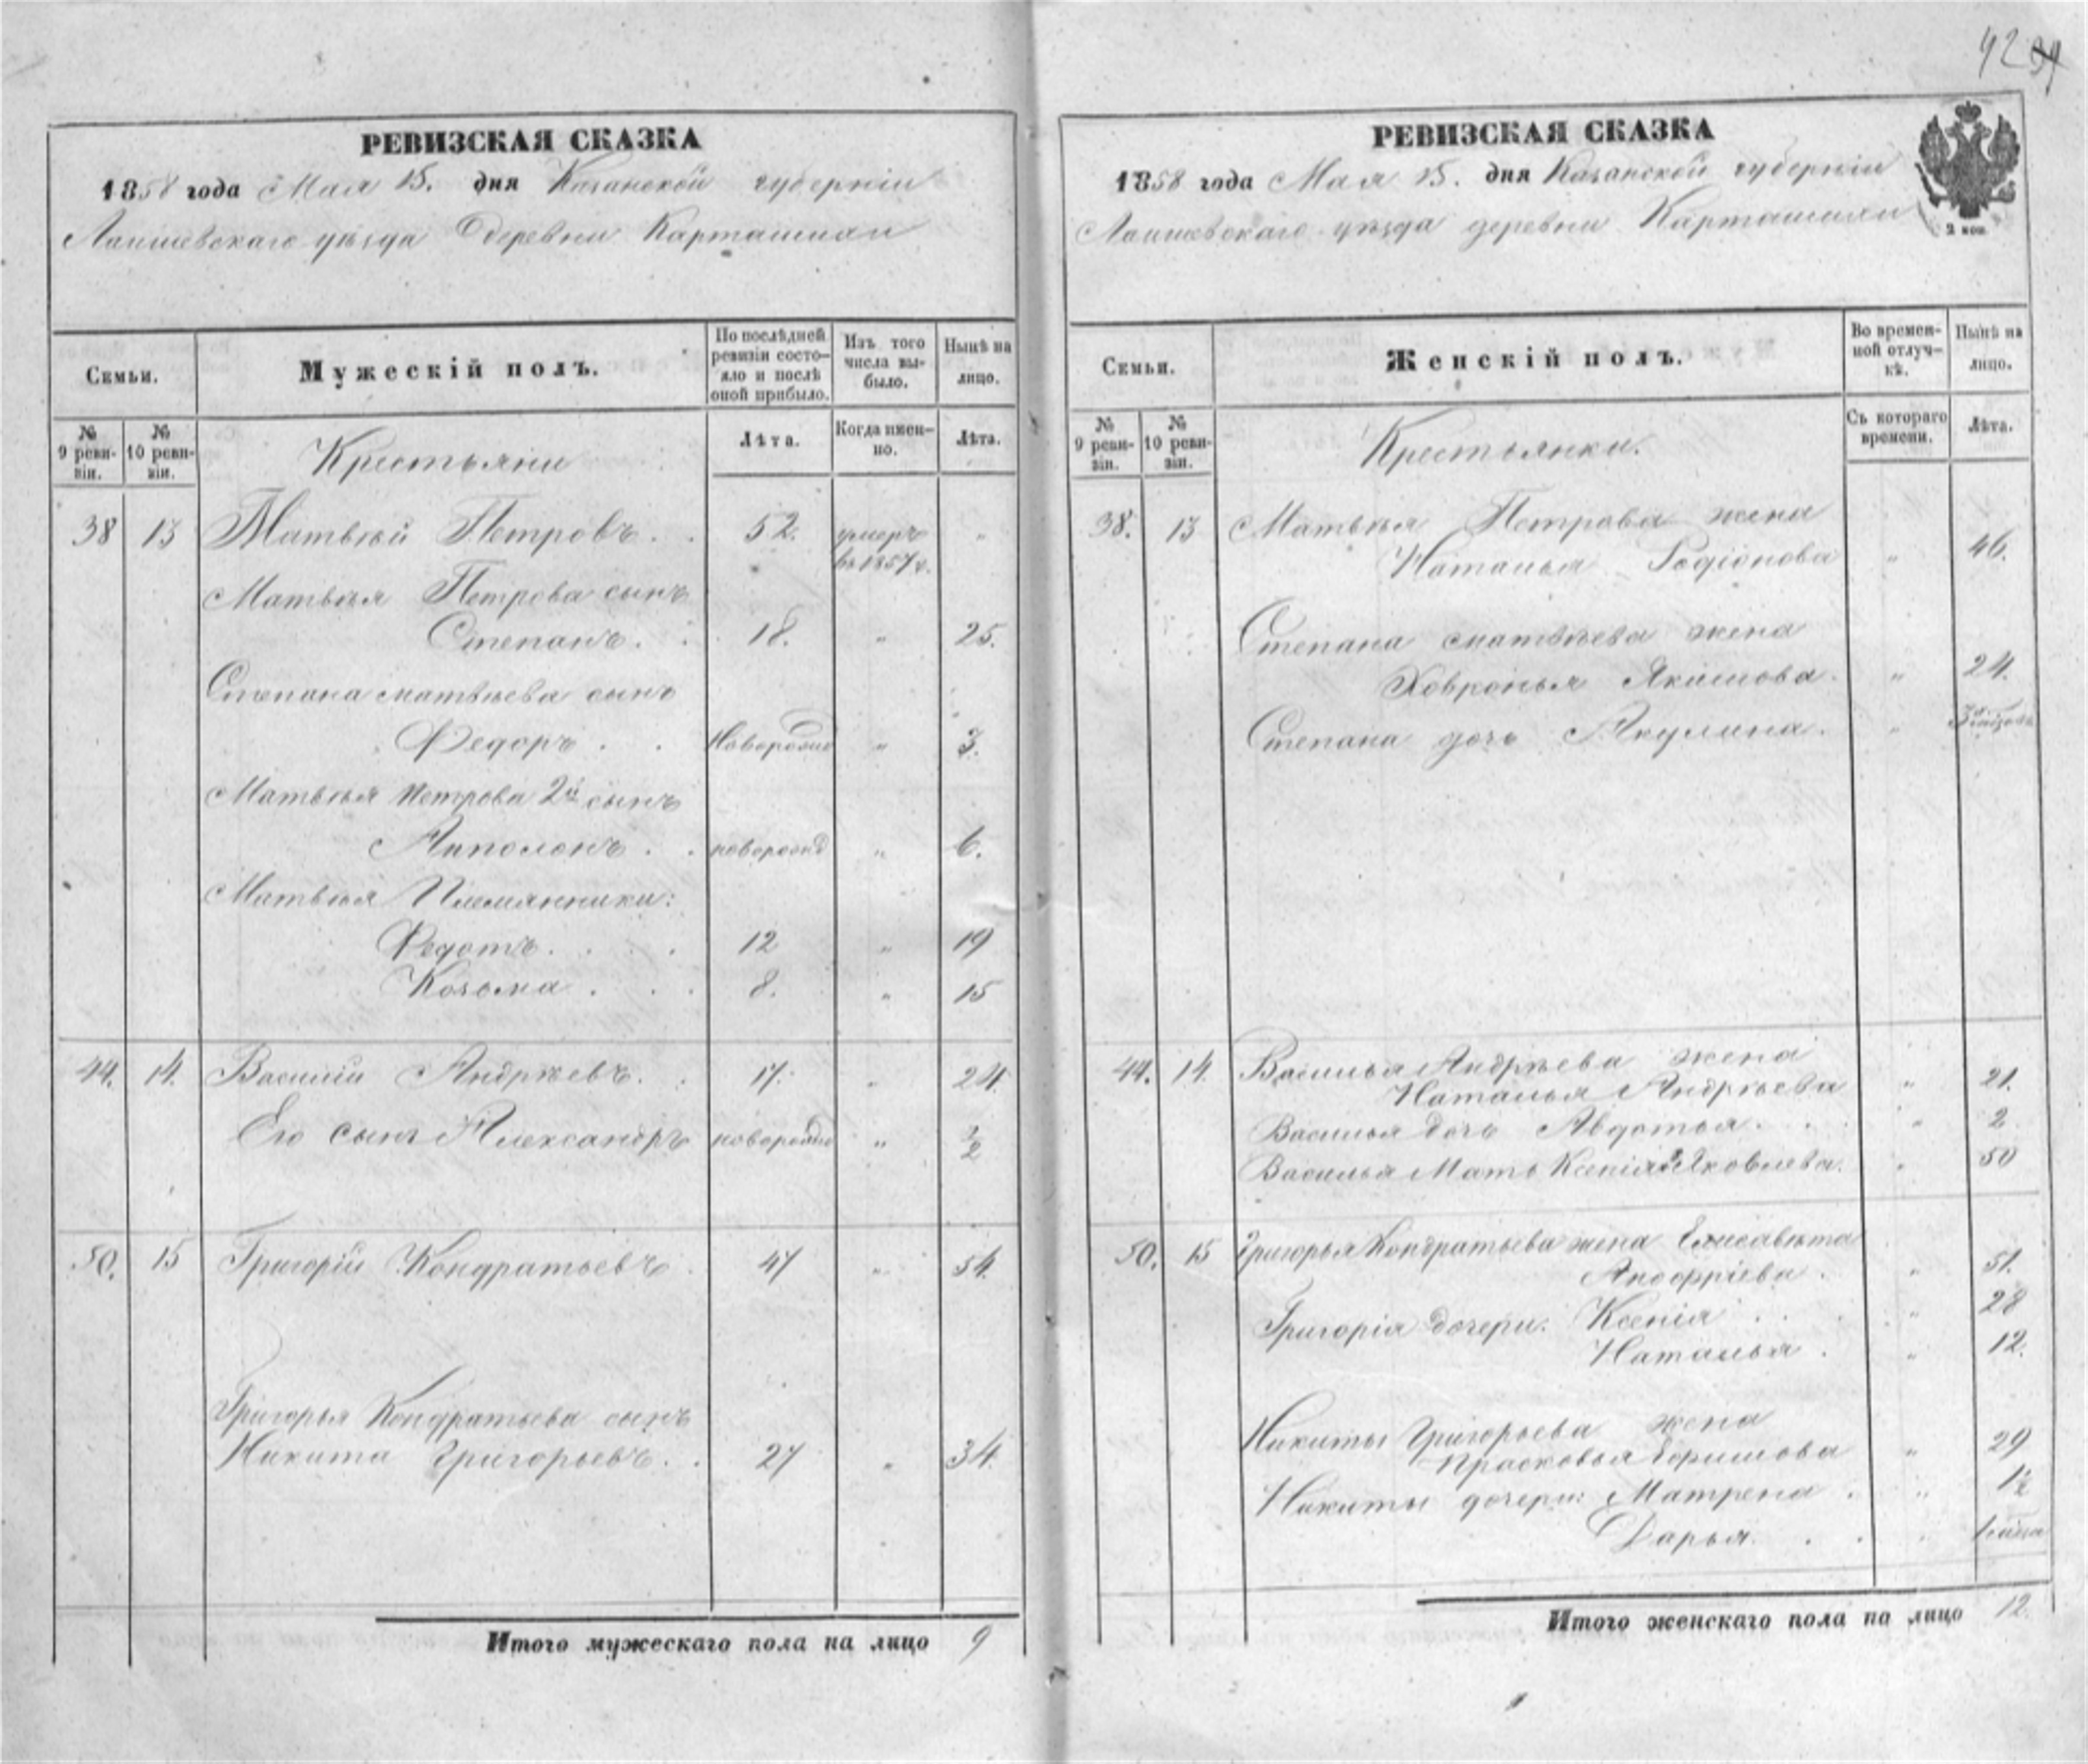 42
РЕВИЗСКАЯ СКАЗКА
1858 года Мая 15. дня Казанской губерніи
Лаишевскаго уѣзда Деревни Карташихи
Семьи.
Мужескій полъ.
По послѣдней ревизіи состояло и послѣ оной прибыло.
Изъ того числа выбыло.
Нынѣ на лицо.
№ 9 ревизіи.
№ 10 ревизіи.
Лѣта.
Когда именно.
Лѣта.
Крестьяни
38 13 Матвѣй Петровъ . . 52. умеръ "
въ 1857 г.
Матвѣя Петрова сынъ
Степанъ. . 18. " 25.
Степана матвѣева сынъ
Федоръ . . Новорожд " 3.
Матвѣя Петрова 2й сынъ
Апполонъ . . новорожд " 6.
Матвѣя Племянники:
Федотъ. . . . 12 " 19
Козьма . . . 8. " 15
44. 14. Василій Андрѣевъ. . 17. " 24.
Его сынъ Александръ новорожд " 1/2
50. 15 Григорій Кондратьевъ . 47 " 54.
Григорья Кондратьева сынъ
Никита Григорьевъ . . 27 " 34.
Итого мужескаго пола на лицо 9
РЕВИЗСКАЯ СКАЗКА
1858 года Мая 15. дня Казанской губерніи
Лаишевскаго уѣзда деревни Карташихи
2 коп.
Семьи.
Женскій полъ.
Во временной отлучкѣ.
Нынѣ на лицо.
№ 9 ревизіи.
№ 10 ревизіи.
Съ котораго времени.
Лѣта.
Крестьянки.
38. 13 Матвѣя Петрова жена
Наталья Родіонова " 46.
Степана матвѣева жена
Ховронья Якимова. " 24.
Степана дочь Акулина. "
44. 14. Василья Андрѣева жена
Наталья Андрѣева " 21.
Василья дочь Авдотья. . . " 2
Василья Мать Ксенія Яковлева. " 50
50. 15 Григорья Кондратьева жена Елисавѣта
. " 51.
Григорія дочери: Ксенія . . . " 28
Наталья . " 12.
Никиты Григорьева жена
Прасковья Ефимова " 29
Никиты дочери: Матрена . " 1 1/2
Дарья. . . "
Итого женскаго пола на лицо 12.